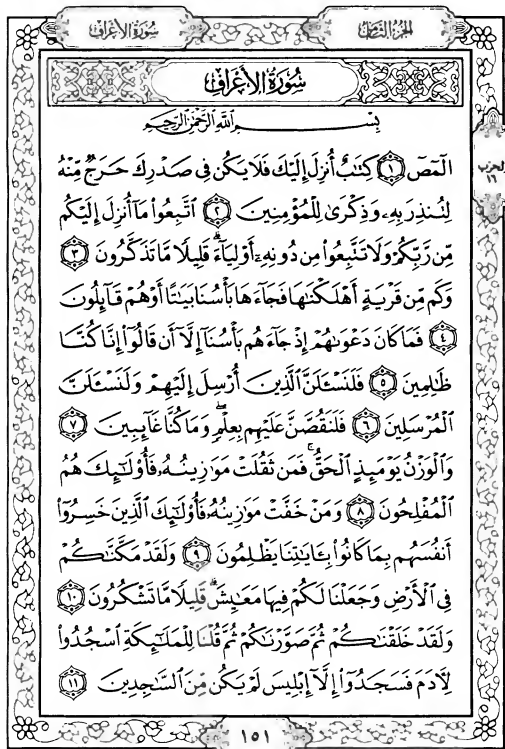 سُورَةُ الأَعْرَافِ
الجُزءُ الثَّامِنُ
سُورَةُ الأَعْرَافِ
بِسْمِ ٱللَّهِ ٱلرَّحْمَٰنِ ٱلرَّحِيمِ
الحزب
١٦
الٓمٓصٓ ١ كِتَٰبٌ أُنزِلَ إِلَيْكَ فَلَا يَكُن فِى صَدْرِكَ حَرَجٌ مِّنْهُ
لِتُنذِرَ بِهِۦ وَذِكْرَىٰ لِلْمُؤْمِنِينَ ٢ ٱتَّبِعُوا۟ مَآ أُنزِلَ إِلَيْكُم
مِّن رَّبِّكُمْ وَلَا تَتَّبِعُوا۟ مِن دُونِهِۦٓ أَوْلِيَآءَ ۗ قَلِيلًا مَّا تَذَكَّرُونَ ٣
وَكَم مِّن قَرْيَةٍ أَهْلَكْنَٰهَا فَجَآءَهَا بَأْسُنَا بَيَٰتًا أَوْ هُمْ قَآئِلُونَ
٤ فَمَا كَانَ دَعْوَىٰهُمْ إِذْ جَآءَهُم بَأْسُنَآ إِلَّآ أَن قَالُوٓا۟ إِنَّا كُنَّا
ظَٰلِمِينَ ٥ فَلَنَسْـَٔلَنَّ ٱلَّذِينَ أُرْسِلَ إِلَيْهِمْ وَلَنَسْـَٔلَنَّ
ٱلْمُرْسَلِينَ ٦ فَلَنَقُصَّنَّ عَلَيْهِم بِعِلْمٍ ۖ وَمَا كُنَّا غَآئِبِينَ ٧
وَٱلْوَزْنُ يَوْمَئِذٍ ٱلْحَقُّ ۚ فَمَن ثَقُلَتْ مَوَٰزِينُهُۥ فَأُو۟لَٰٓئِكَ هُمُ
ٱلْمُفْلِحُونَ ٨ وَمَنْ خَفَّتْ مَوَٰزِينُهُۥ فَأُو۟لَٰٓئِكَ ٱلَّذِينَ خَسِرُوٓا۟
أَنفُسَهُم بِمَا كَانُوا۟ بِـَٔايَٰتِنَا يَظْلِمُونَ ٩ وَلَقَدْ مَكَّنَّٰكُمْ
فِى ٱلْأَرْضِ وَجَعَلْنَا لَكُمْ فِيهَا مَعَٰيِشَ ۗ قَلِيلًا مَّا تَشْكُرُونَ ١٠
وَلَقَدْ خَلَقْنَٰكُمْ ثُمَّ صَوَّرْنَٰكُمْ ثُمَّ قُلْنَا لِلْمَلَٰٓئِكَةِ ٱسْجُدُوا۟
لِـَٔادَمَ فَسَجَدُوٓا۟ إِلَّآ إِبْلِيسَ لَمْ يَكُن مِّنَ ٱلسَّٰجِدِينَ ١١
١٥١